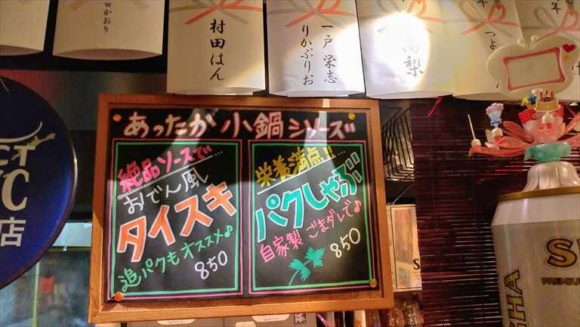 wかおり
村田はん
一戸 栄志
りかぶりお
高梨
つよ
CT
C
店
あったか 小鍋 シリーズ
絶品ソースで...
おでん風
タイスキ
追パクもオススメ♪
850
栄養満点!!...
パクしゃぶ
自家製 ごまダレで♪
850
S
PREMIUM